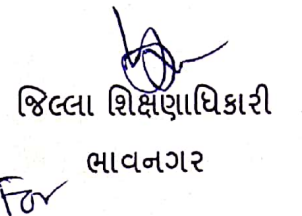 જિલ્લા શિક્ષણાધિકારી
ભાવનગર
For